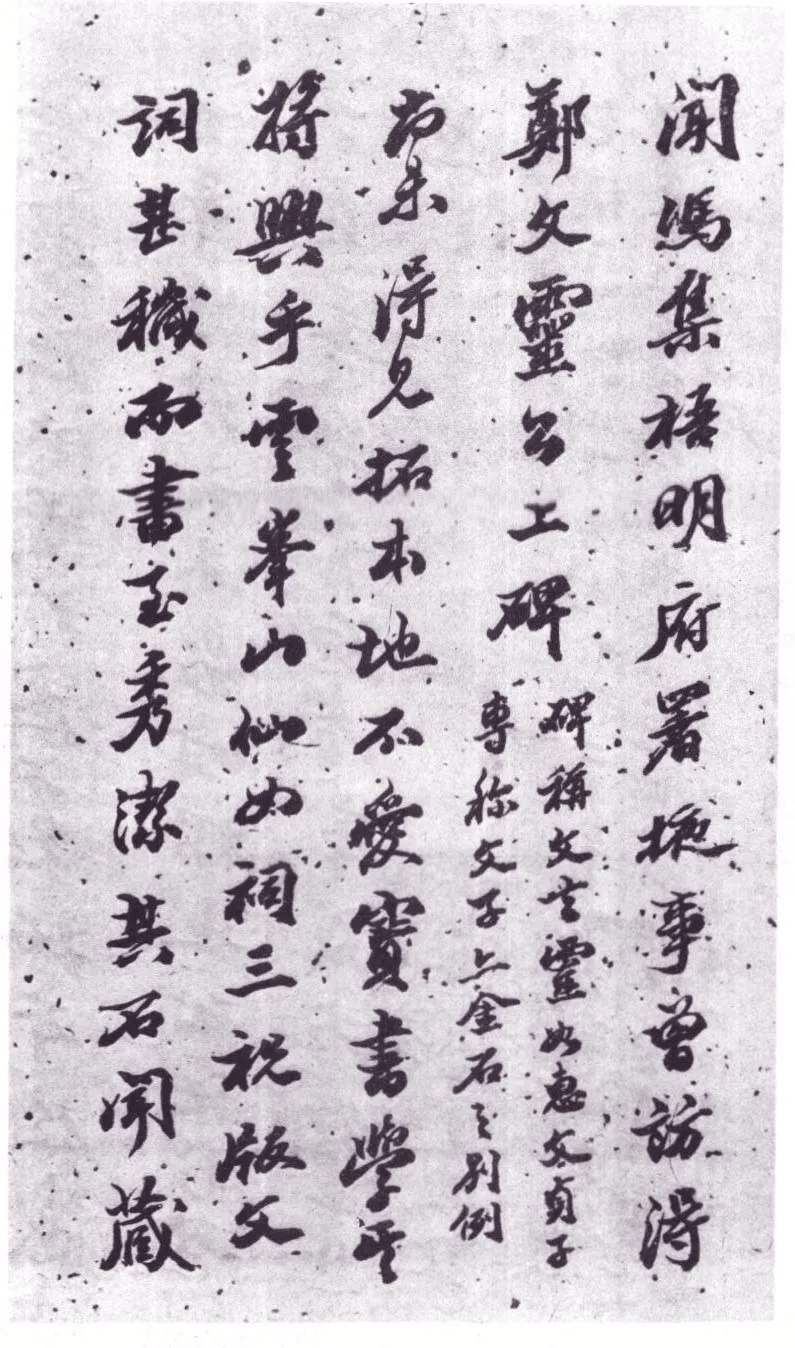 聞馮集梧明府署掖事曾訪得
鄭文靈公上碑
碑稱文哀靈如惠文貞子
專称文子亦金石之别例
尚未得見拓本地不愛寶書學其
将興乎雲峯山仙如祠三祝版文
詞甚穢而書至秀潔其石聞藏